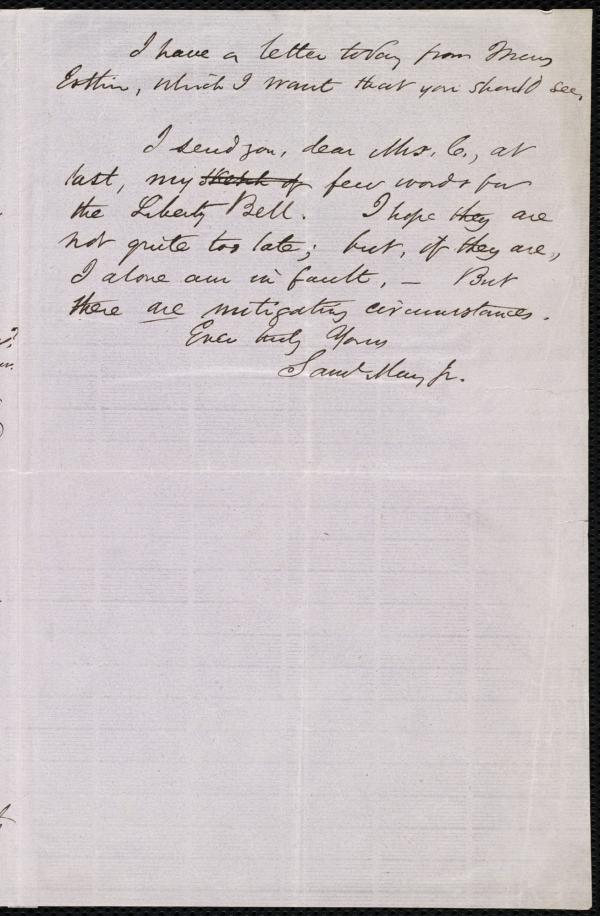 I have a letter today from Mary
Estlin, which I want that you should see.
I send you, dear Mrs. C., at
last, my sketch of few words for
the Liberty Bell. I hope they are
not quite too late; but, if they are,
I alone am in fault. — But
there are mitigating circumstances.
Ever truly Yours
Saml May Jr.